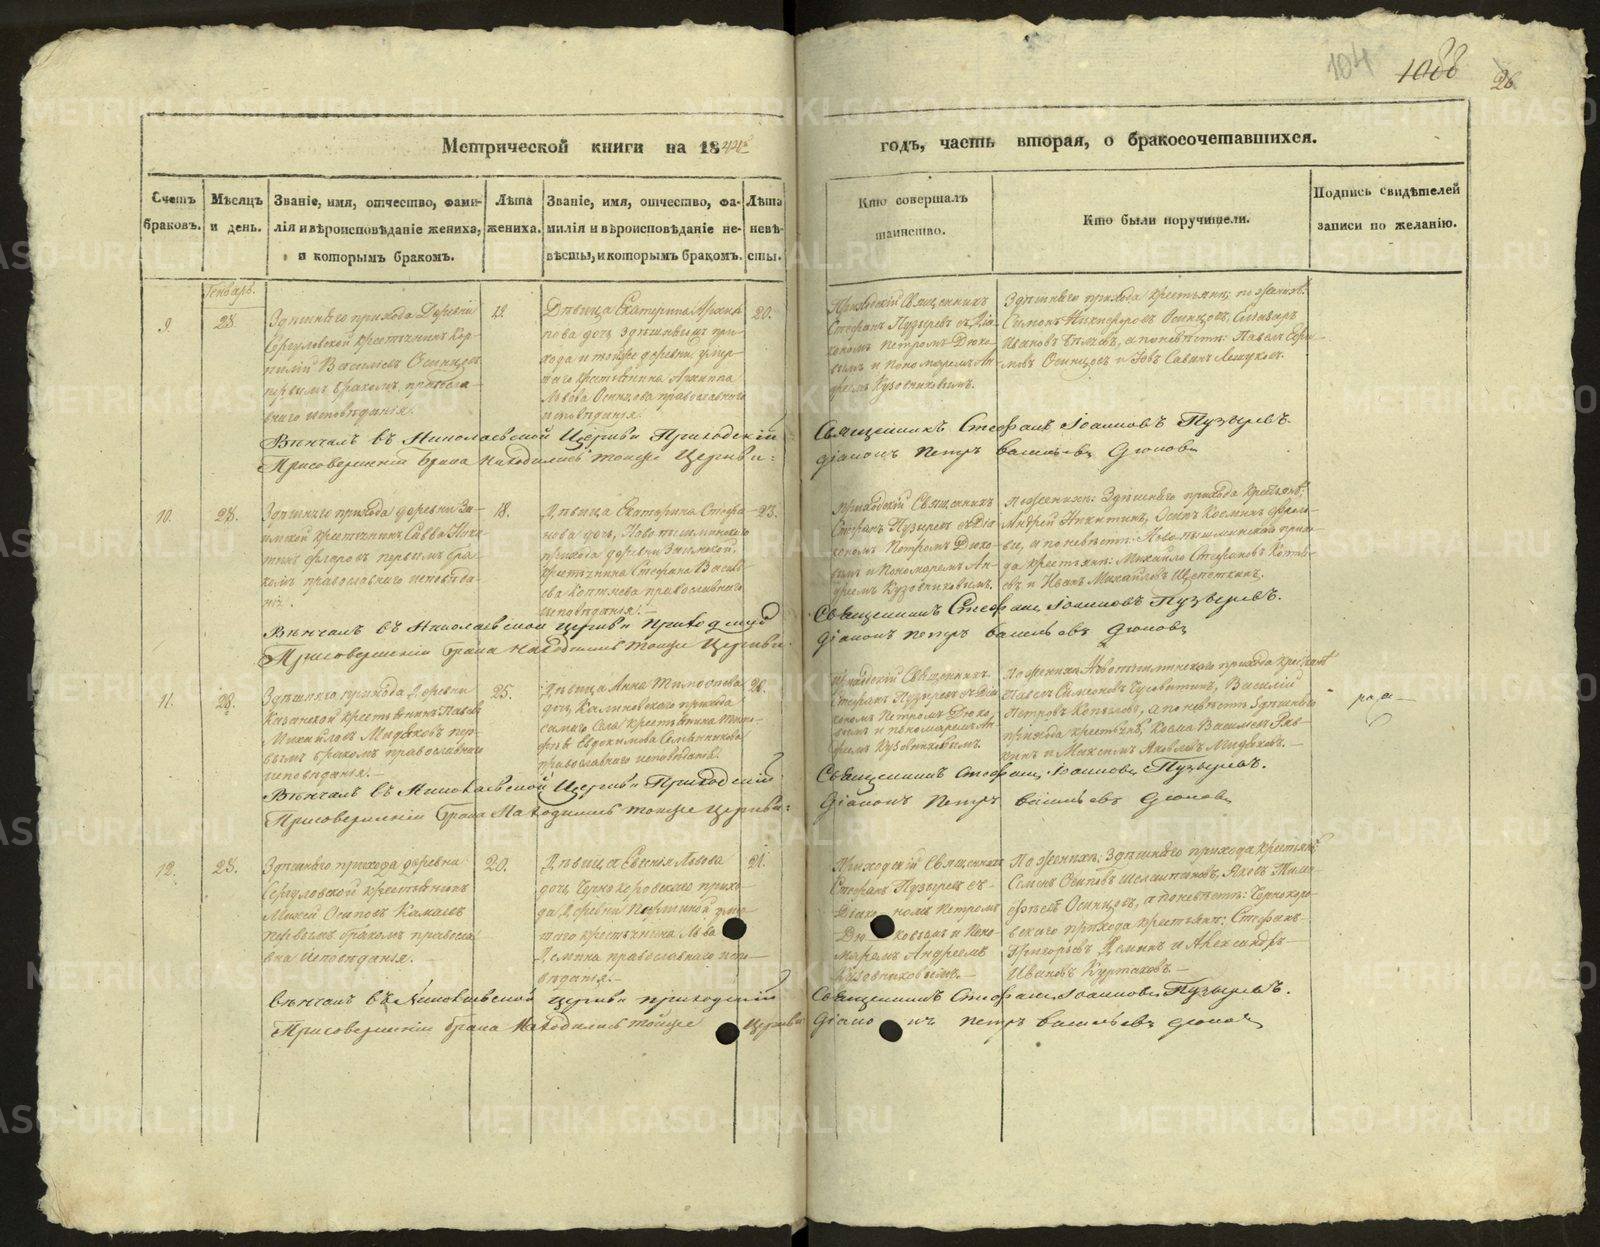 104 1088 26
Метрической книги на 1844й
годъ, часть вторая, о бракосочетавшихся.
Счетъ
браковъ.
Мѣсяцъ
и день.
Званіе, имя, отчество, фами-
лія и вѣроисповѣданіе жениха,
и которымъ бракомъ.
Лѣта
жениха.
Званіе, имя, отчество, фа-
милія и вѣроисповѣданіе не-
вѣсты, и которымъ бракомъ.
Лѣта
невѣ-
сты.
Кто совершалъ
таинство.
Кто были поручители.
Подпись свидѣтелей
записи по желанію.
Генварь.
9.
28
Здѣшняго прихода Деревни
крестьянинъ Кор-
нилій Васильевъ Осинцовъ
первымъ бракомъ, православ-
наго исповѣданія.
Дѣвица Екатерина Архип-
пова дочь, здѣшняго при-
хода и тойже деревни умер-
шаго крестьянина Архиппа
Львова Осинцова православнаго
исповѣданія.
20.
Приходскій Священникъ
Стефанъ Пузыревъ съ Діа-
кономъ Петромъ Дюко-
вымъ и Пономаремъ Ан-
дреемъ Кузовниковымъ.
Здѣшняго прихода крестьяне: по женихѣ:
Симонъ Никифоровъ Осинцовъ,
Ивановъ а по невѣстѣ: Павелъ
Осинцовъ и Іовъ Савинъ
Вѣнчалъ въ Николаевской Церкви Приходскій
Присовершеніи брака находились тойже Церкви:
Священникъ Стефанъ Іоанновъ Пузыревъ.
Діаконъ Петръ Васильевъ Дюковъ
10.
28.
Здѣшняго прихода деревни За-
имской крестьянинъ Савва Ники-
тинъ первымъ бра-
комъ православнаго исповѣда-
нія.
18.
Дѣвица Екатерина Стефа-
нова дочь, Новопышминскаго
прихода деревни Заимской,
крестьянина Стефана Василь-
ева Коптяева православнаго
исповѣданія.
23.
Приходскій Священникъ
Стефанъ Пузыревъ съ Діа-
кономъ Петромъ Дюко-
вымъ и Пономаремъ Ан-
дреемъ Кузовниковымъ.
По женихѣ: Здѣшняго прихода крестьяне:
Андрей Никитинъ, Осипъ Косминъ
а по невѣстѣ: Новопышминскаго прихо-
да крестьяне: Михайло Стефановъ Коптя-
евъ и Иванъ Михайловъ Щепеткинъ.
Вѣнчалъ въ Николаевской Церкви Приходскій
Присовершеніи брака находились тойже Церкви.
Священникъ Стефанъ Іоанновъ Пузыревъ.
Діаконъ Петръ Васильевъ Дюковъ
11.
28.
Здѣшняго прихода Деревни
Казанской крестьянинъ Павелъ
Михайловъ пер-
вымъ бракомъ православнаго
исповѣданія.
25.
Дѣвица Анна Тимофѣева
дочь, Калиновскаго прихода
самаго Села крестьянина Тимо-
фѣя Евдокимова
православнаго исповѣданія.
Приходскій Священникъ
Стефанъ Пузыревъ съ Діа-
кономъ Петромъ Дюко-
вымъ и пономаремъ Ан-
дреемъ Кузовниковымъ.
По женихѣ: Новопышминскаго прихода крестьяне
Павелъ Симеоновъ Василій
Петровъ Копыловъ, а по невѣстѣ здѣшняго
прихода крестьяне, Косма Васильевъ
и Максимъ Яковлевъ
Вѣнчалъ въ Николаевской Церкви Приходскій
Присовершеніи брака Находились тойже Церкви:
Священникъ Стефанъ Іоанновъ Пузыревъ.
Діаконъ Петръ Васильевъ Дюковъ
12.
28.
Здѣшняго прихода деревни
крестьянинъ
Мокей Осиповъ Камаевъ
первымъ бракомъ правосла-
вна исповѣданія.
20.
Дѣвица Евгенья Львова
дочь, Чернокоровскаго прихо-
да, Деревни умер-
шаго крестьянина Льва
Демина православнаго испо-
вѣданія.
21.
Приходскій Священникъ
Стефанъ Пузыревъ съ
Діакономъ Петромъ
Дюковымъ и Поно-
маремъ Андреемъ
Кузовниковымъ.
По женихѣ: Здѣшняго прихода крестьяне
Семенъ Осиповъ Яковъ Тимо-
фѣевъ Осинцовъ, а по невѣстѣ: Чернокоро-
вскаго прихода крестьяне: Стефанъ
Григорьевъ Деминъ и Александръ
Ивановъ Куртаковъ.
Вѣнчалъ въ Николаевской Церкви приходскій
Присовершеніи брака Находились тойже Церкви
Священникъ Стефанъ Іоанновъ Пузыревъ.
Діаконъ Петръ Васильевъ Дюковъ
METRIKI.GASO-URAL.RU